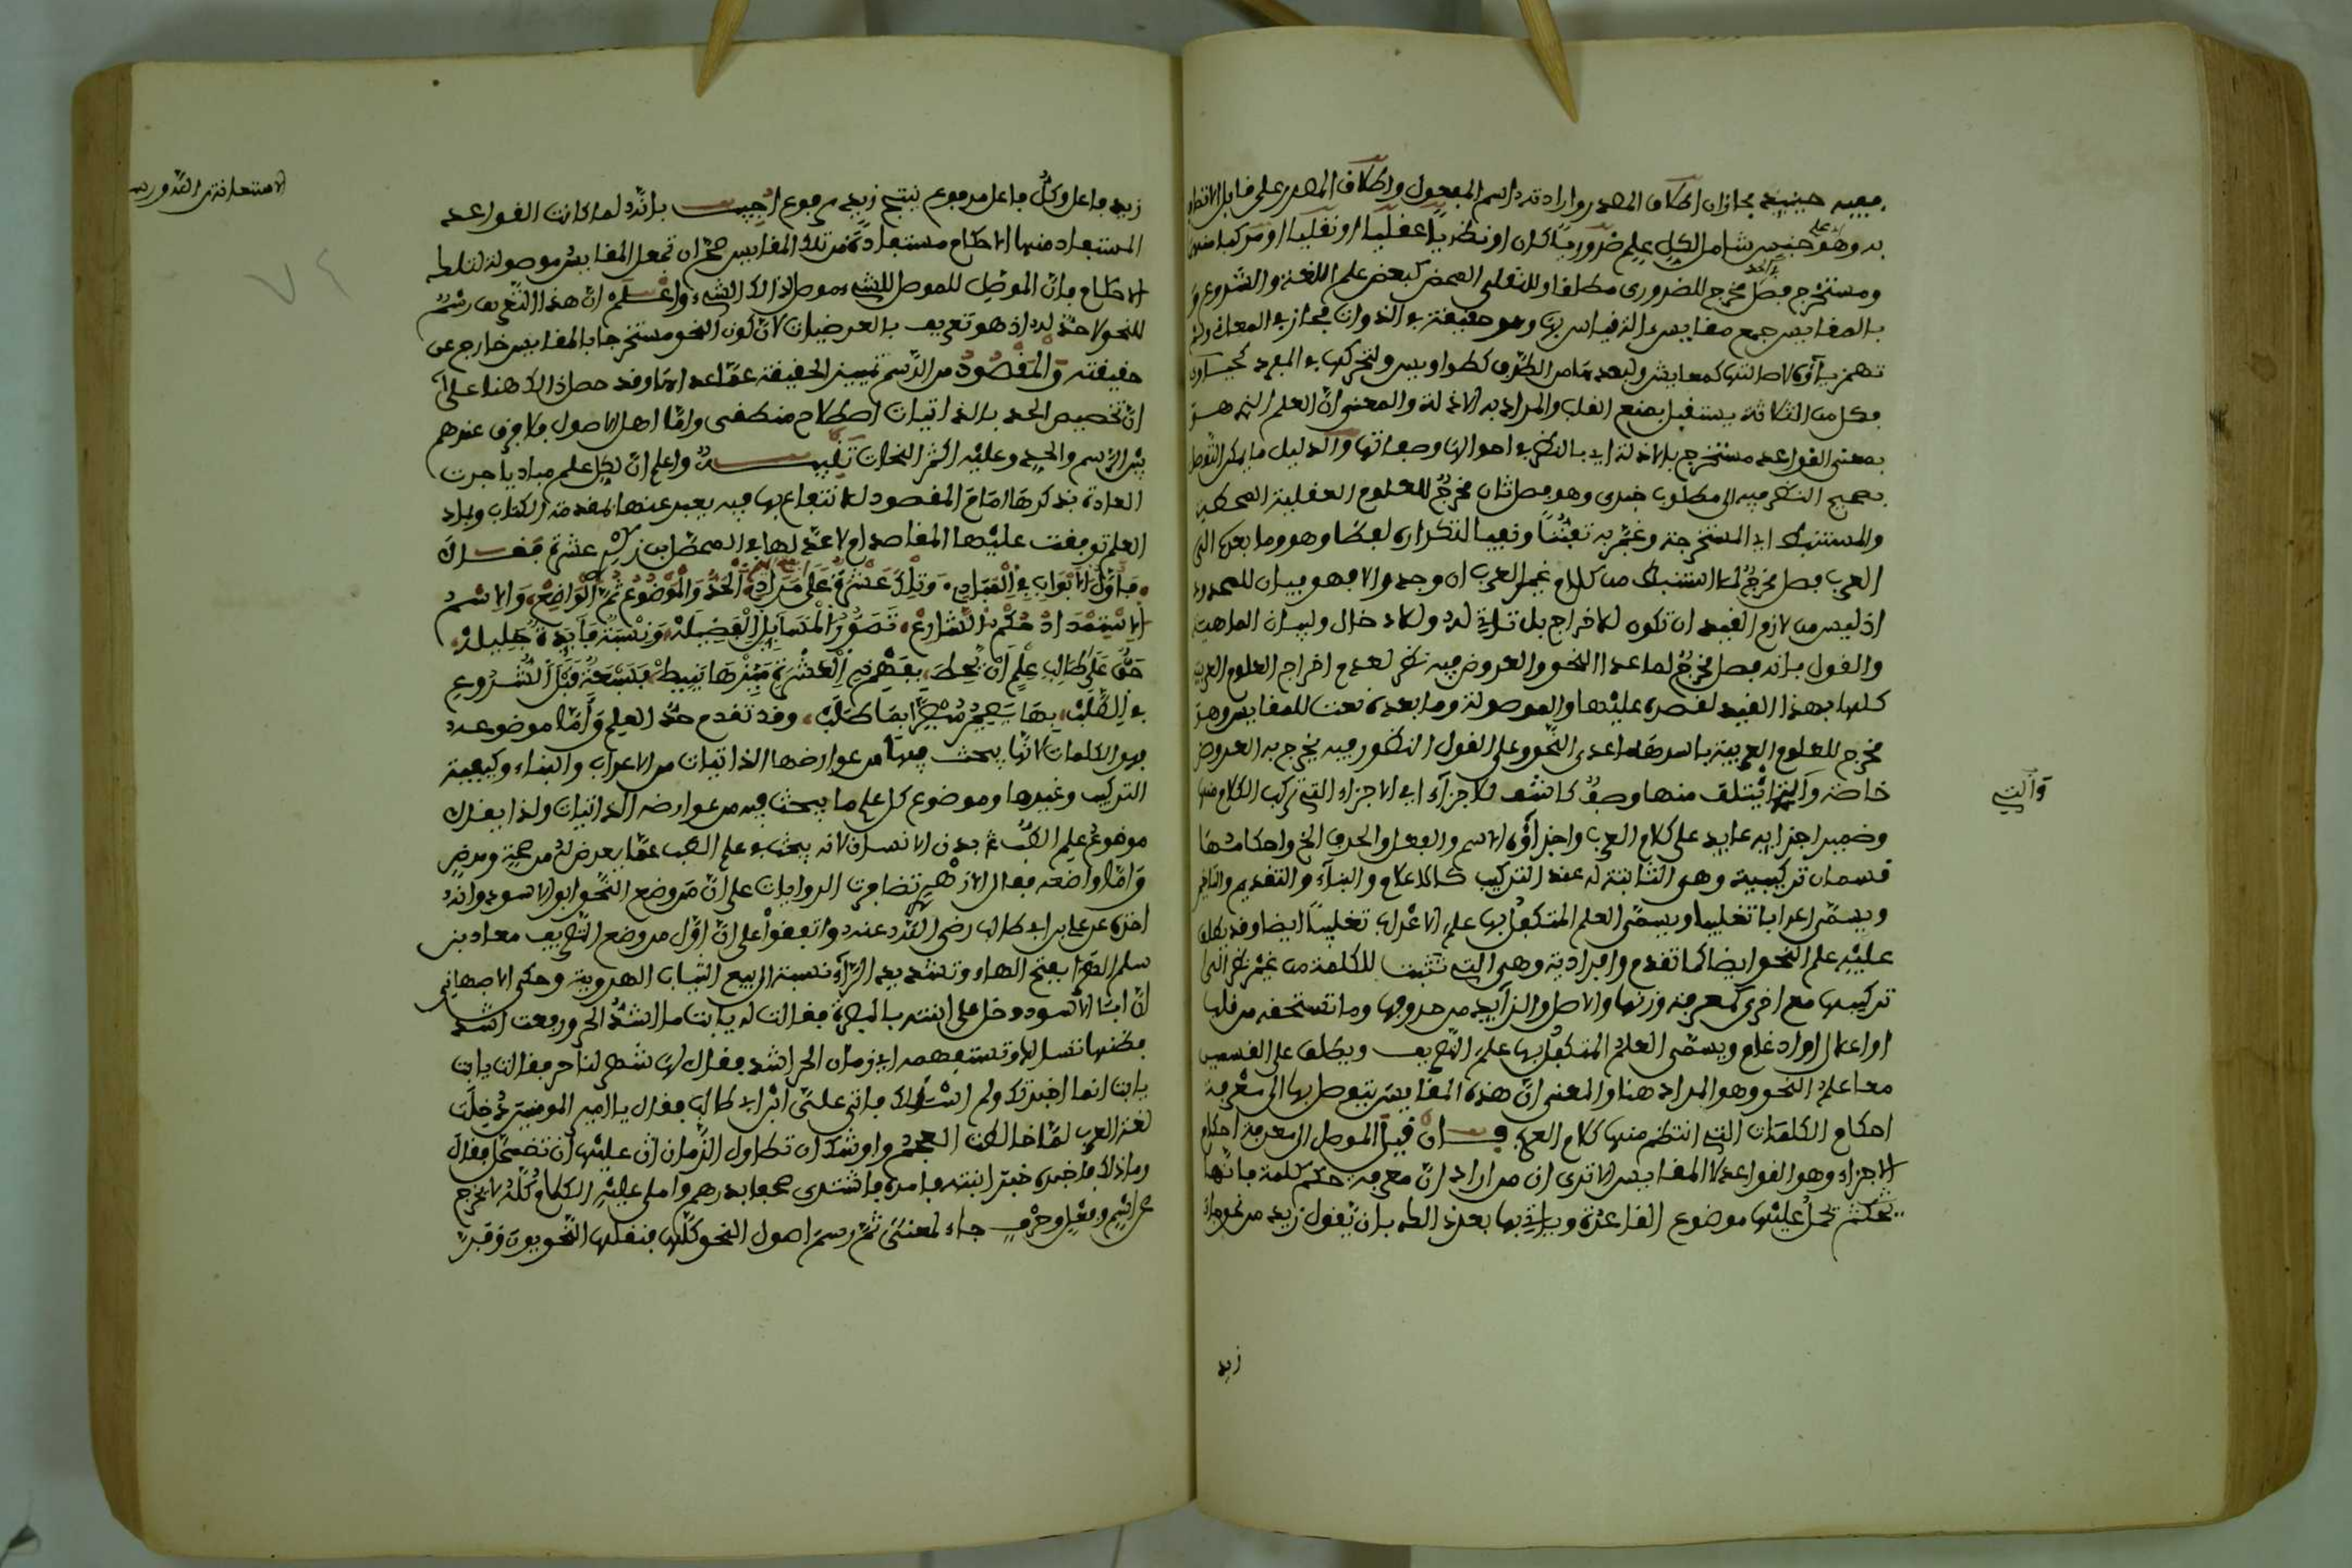 ففيه حينئذ مجازان اطلاق المصدر وارادة اسم المفعول واطلاق المصدر على قابل الاتصاف
به وهو جنس شامل لكل علم ضروريا كان او نظريا عقليا او نقليا او مركبا منهما
ومستخرج فصل مخرج للضروري مطلقا وللنقلي المحض كبعض علم اللغة والشروع و
بالمقاييس جمع مقياس الة القياس وهو حقيقة في الذوات مجاز في المعاني ولم
تهمز ياؤه لاصالتها كمعايش
فكل من الثلاثة يستقبل بمنع القلب والمراد به الادلة والمعنى ان العلم الذي هو
بمعنى القواعد مستخرج بالادلة اي بالنظر في احوالها وصفاتها والدليل ما يمكن التوصل
بصحيح النظر فيه الى مطلوب خبري وهو فصل ثان مخرج للعلوم العقلية المحضة
والمستنبطة اي المستخرجة وعبر به تفننا وتفاديا التكرار لفظا وهو وما بعده الى
العرب فصل مخرج لما استنبط من كلام غير العرب ان وجد والا فهو بيان للمحدود
اذ ليس من لازم القيد ان تكون للاخراج بل تارة له وللادخال ولبيان الماهية
والقول بانه فصل مخرج لما عدا النحو والعروض فيه نظر لعدم اخراج العلوم العربية
كلها بهذا القيد لقصره عليها والموصولة وما بعده نعت للمقاييس وهو
مخرج للعلوم العربية باسرها ما عدى النحو وعلى القول المنظور فيه يخرج به العروض
خاصة والتي ائتلف منها وصف كاشف للاجزاء اي الاجزاء التي تركب الكلام منها
والتي
وضمير اجزائه عايد على كلام العرب واجزاؤه الاسم والفعل والحرف الخ واحكامها
قسمان تركيبية وهو الثابتة له عند التركيب كالاعلام والبناء والتقديم والتاخير
ويسمى اعرابا تغليبا ويسمى العلم المتكفل بها علم الاعراب تغليبا ايضا وقد يطلق
عليه علم النحو ايضا كما تقدم وافرادية وهي التي تثبت للكلمة من غير نظر الى
تركيبها مع اخرى كمعرفة وزنها والاصل والزايد من حروفها وما تستحقه من قلب
او اعلال او ادغام ويسمى العلم المتكفل بها علم التصريف ويطلق على القسمين
معا علم النحو وهو المراد هنا والمعنى ان هذه المقاييس يتوصل بها الى معرفة
احكام الكلمات التي انتظم منها كلام العرب فان قيل الموصل الى معرفة احكام
الاجزاء وهو القواعد لا المقاييس الا ترى ان من اراد ان معرفة حكم كلمة فانها
يحكم عليها موضوع القاعدة وياتي بها بعد ذلك بان يقول زيد من نحو جاء
زيد
زيد فاعل وكل فاعل مرفوع ينتج زيد مرفوع اجيب بانه لما كانت القواعد
المستفاد منها الاحكام مستفادة من تلك المقاييس صح ان تجعل المقاييس موصولة لتلك
الاحكام فان الموصل للموصل للشيء موصل لذلك الشيء واعلم ان هذا التعريف رسم
للنحو لا حد له اذ هو تعريف بالعرضيات لان كون النحو مستخرجا بالمقاييس خارج عن
حقيقته والمقصود من الرسم تمييز الحقيقة عما عداها وقد حصل ذلك هنا على
ان تخصيص الحد بالذاتيات اصطلاح منطقي واما اهل الاصول فلا فرق عندهم
بين الرسم والحد وعليه اكثر النحاة تنبيه واعلم ان لكل علم مباديا جرت
العادة بذكرها امام المقصود للانتفاع بها فيه يعبر عنها بمقدمة الكتاب ومباد
العلم توقفت عليها المقاصد ام لا عدلها في المحصل ابن زكري عشرة فقال
فاول الابواب في المبادي وتلك عشرة على مراد الحد والموضوع ثم الواضع والاسم
الاستمداد حكم الشارع تصور المسايل الفضيلة ونسبة فايدة جليلة
حق على طالب علم ان يحيط بفهم ذي العشرة ميزها ينيط بسبعة قبل الشروع
في الطلب بها يصير مبصرا بما طلب وقد تقدم حد العلم واما موضوعه
فهو الكلمات لانها يبحث فيها من عوارضها الذاتيات من الاعراب والبناء وكيفية
التركيب وغيرها وموضوع كل علم ما يبحث فيه من عوارضه الذاتيات ولذا يقال
موضوع علم الطب بدن الانسان لانه يبحث في علم الطب عما يعرض له من صحة ومرض
واما واضعه فقال الازهري تضافرت الروايات على ان من وضع النحو ابو الاسود وانه
اخذه عن علي بن ابي طالب رضي الله عنه واتفقوا على ان اول من وضع التصريف معاذ بن
مسلم الهرا بفتح الهاء وتشديد الراء نسبة الى بيع الثياب الهروية وحكى الاصبهاني
ان ابا الاسود دخل على ابنته بالبصرة فقالت له يا ابت ما اشد الحر ورفعت اشد
فظنها تسال وتستفهم اي زمان الحر اشد فقال لها شهر ناجر فقالت يا ابت
يا ابت انما اخبرتك ولم اسئلك فاتى علي ابن ابي طالب فقال يا امير المومنين ذهبت
لغة العرب لما خالطت العجم واوشك ان تطاول الزمان ان عليها ان تضمحل فقال
وما ذلك فاخبره خبر ابنته فامره فاشترى صحفا بدرهم واملى عليه الكلام كله لا يخرج
عن اسم وفعل وحرف جاء لمعنى ثم رسم اصول النحو كلها فنقلها النحويون وفر